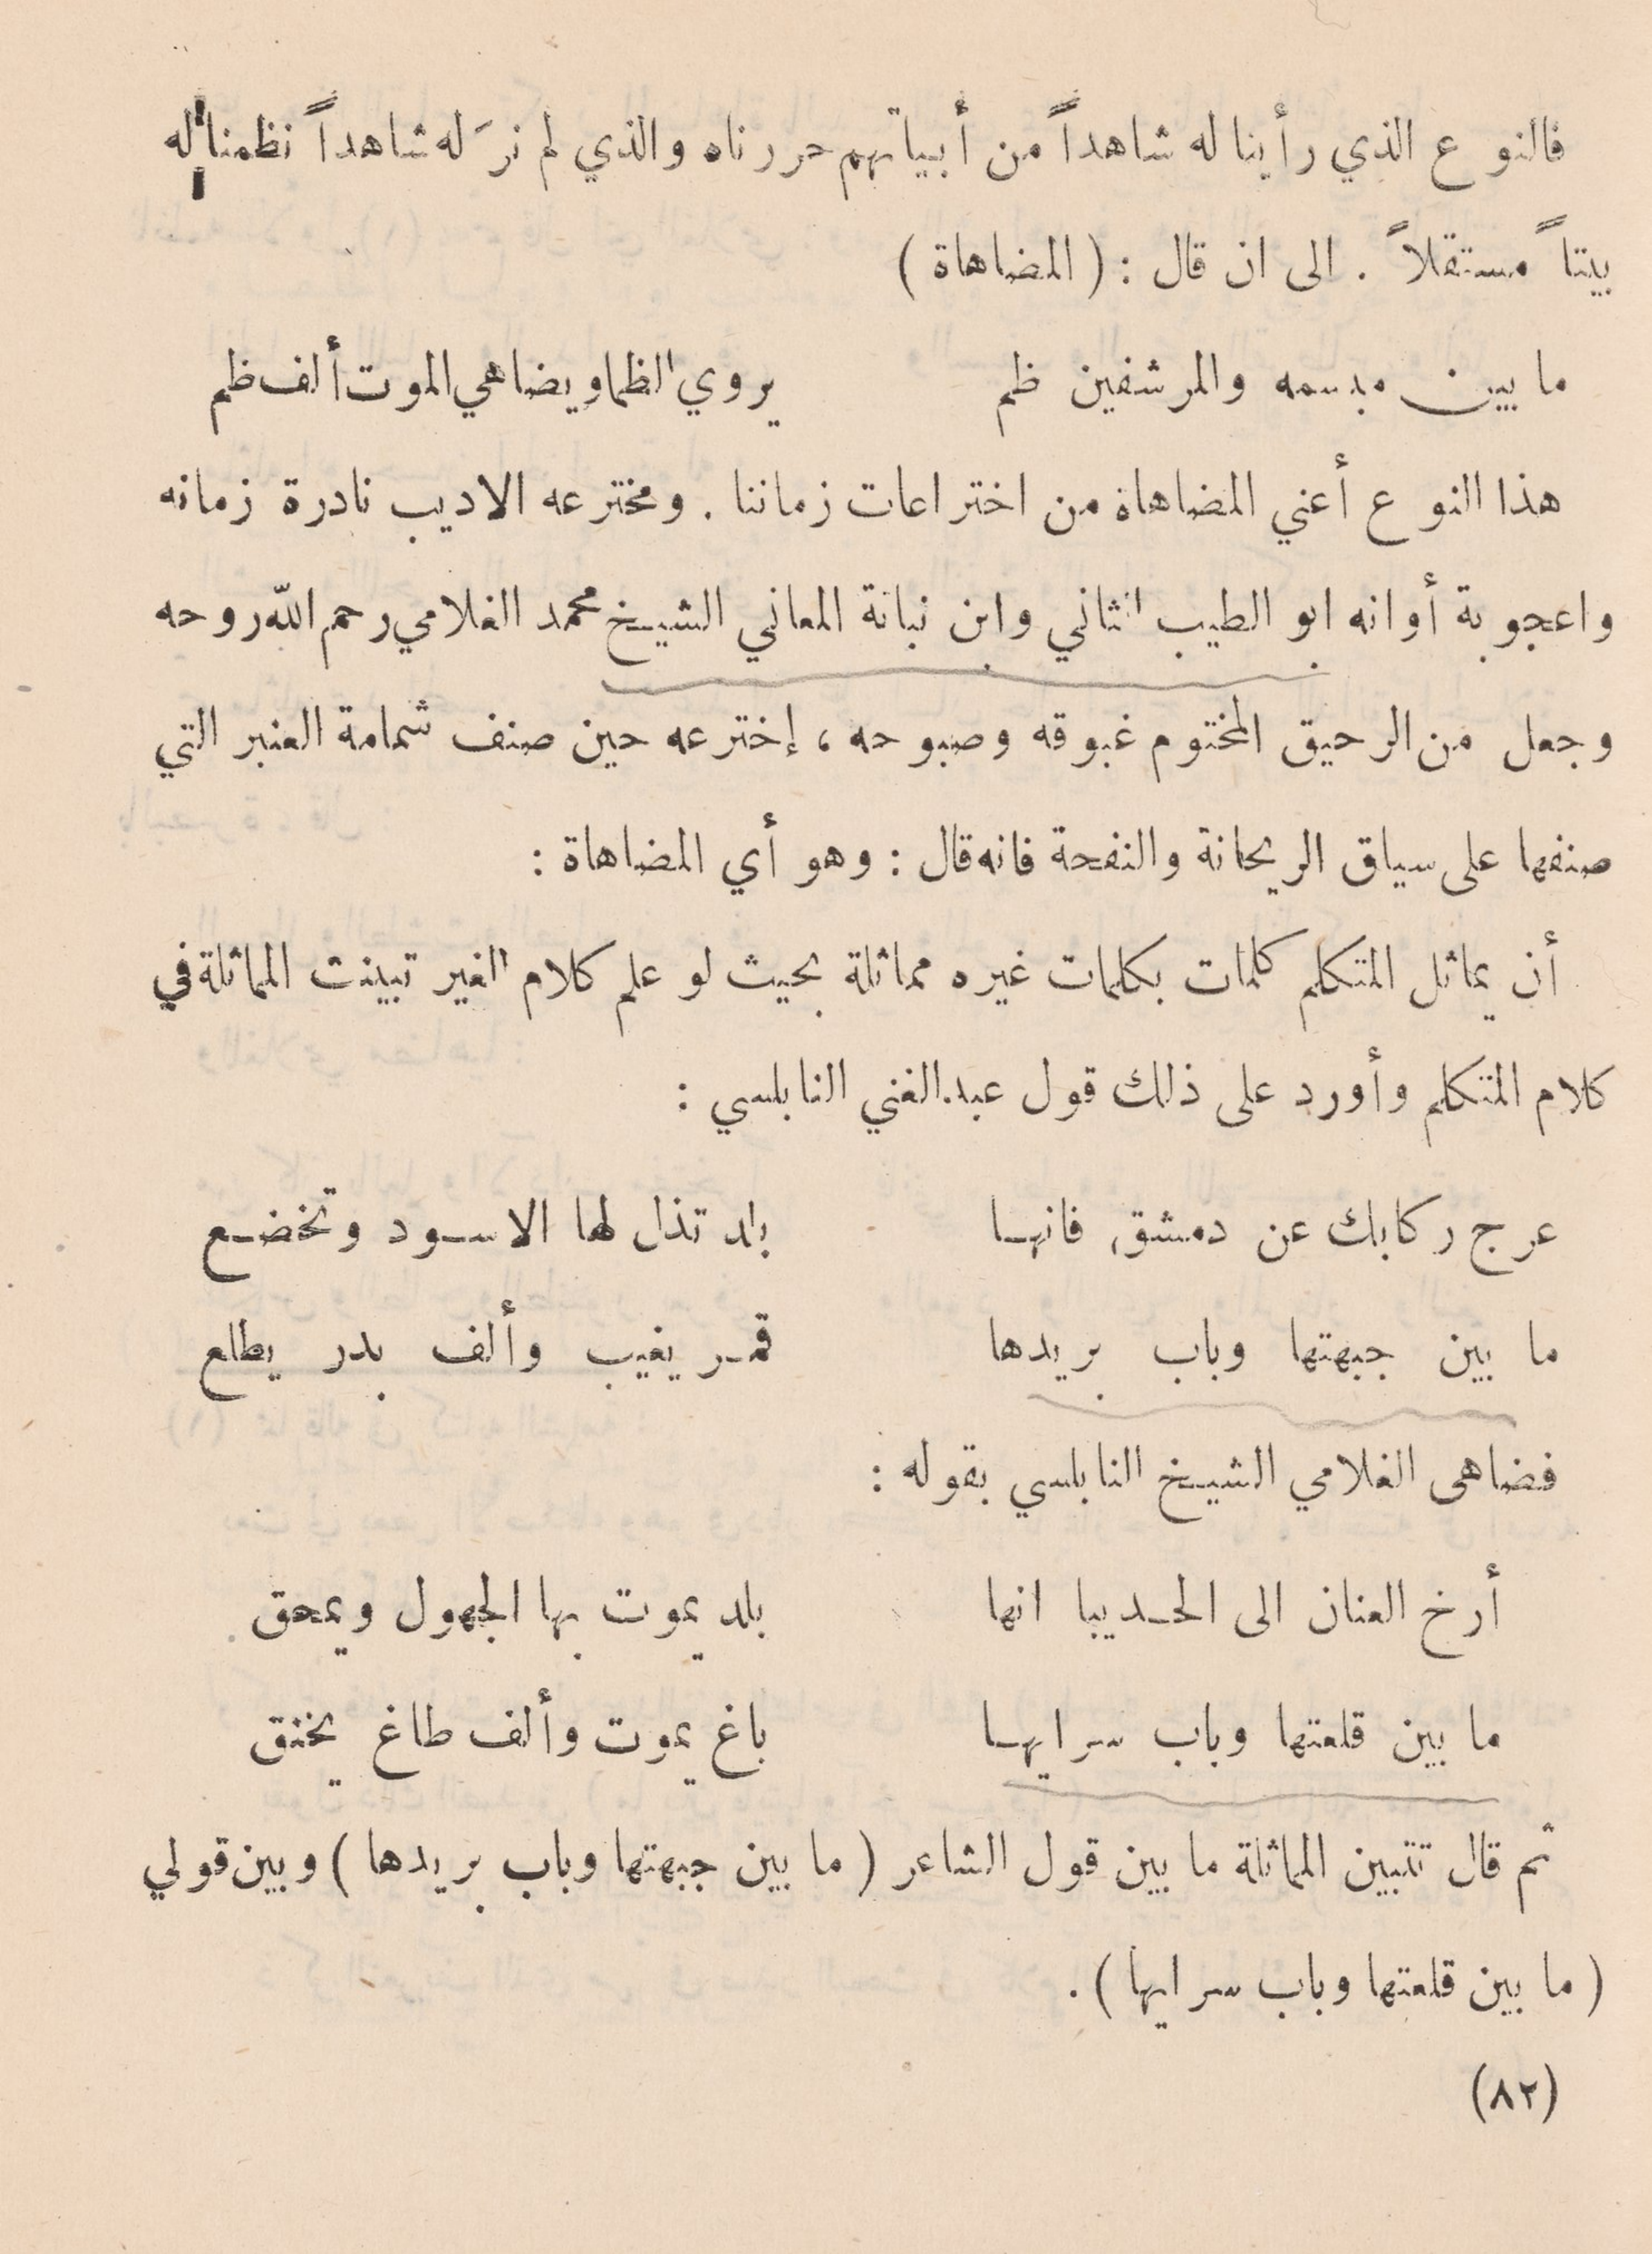 فالنوع الذي رأينا له شاهداً من أبياتهم حررناه والذي لم نرَ له شاهداً نظمنا له
بيتاً مستقلاً . الى ان قال : ( المضاهاة )
ما بين مبسمه والمرشفين ظم يروي الظما ويضاهي الموت ألف ظم
هذا النوع أعني المضاهاة من اختراعات زماننا . ومخترعه الاديب نادرة زمانه
واعجوبة أوانه ابو الطيب الثاني وابن نباتة المعاني الشيخ محمد الغلامي رحم الله روحه
وجعل من الرحيق المختوم غبوقه وصبوحه ، إخترعه حين صنف شمامة العنبر التي
صنفها على سياق الريحانة والنفحة فانه قال : وهو أي المضاهاة :
أن يماثل المتكلم كلمات بكلمات غيره مماثلة بحيث لو علم كلام الغير تبينت المماثلة في
كلام المتكلم وأورد على ذلك قول عبد الغني النابلسي :
عرج ركابك عن دمشق فانها بلد تذل لها الاسود وتخضع
ما بين جبهتها وباب بريدها قمر يغيب وألف بدر يطلع
فضاهى الغلامي الشيخ النابلسي بقوله :
أرخ العنان الى الحديبا انها بلد يموت بها الجهول ويمحق
ما بين قلعتها وباب سرايها باغ يموت وألف طاغ يخنق
ثم قال تتبين المماثلة ما بين قول الشاعر ( ما بين جبهتها وباب بريدها ) وبين قولي
( ما بين قلعتها وباب سرايها ) .
(٨٢)